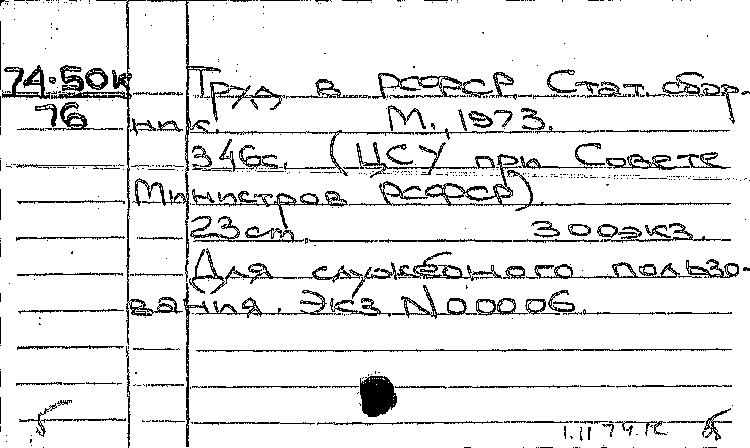 74-50к Труд в РСФСР. Стат. сбор-
76 ник. М., 1973.
346с. (ЦСУ при Совете
Министров РСФСР).
23ст 300экз.
Для служебного пользо-
вания. Экз. N00006.